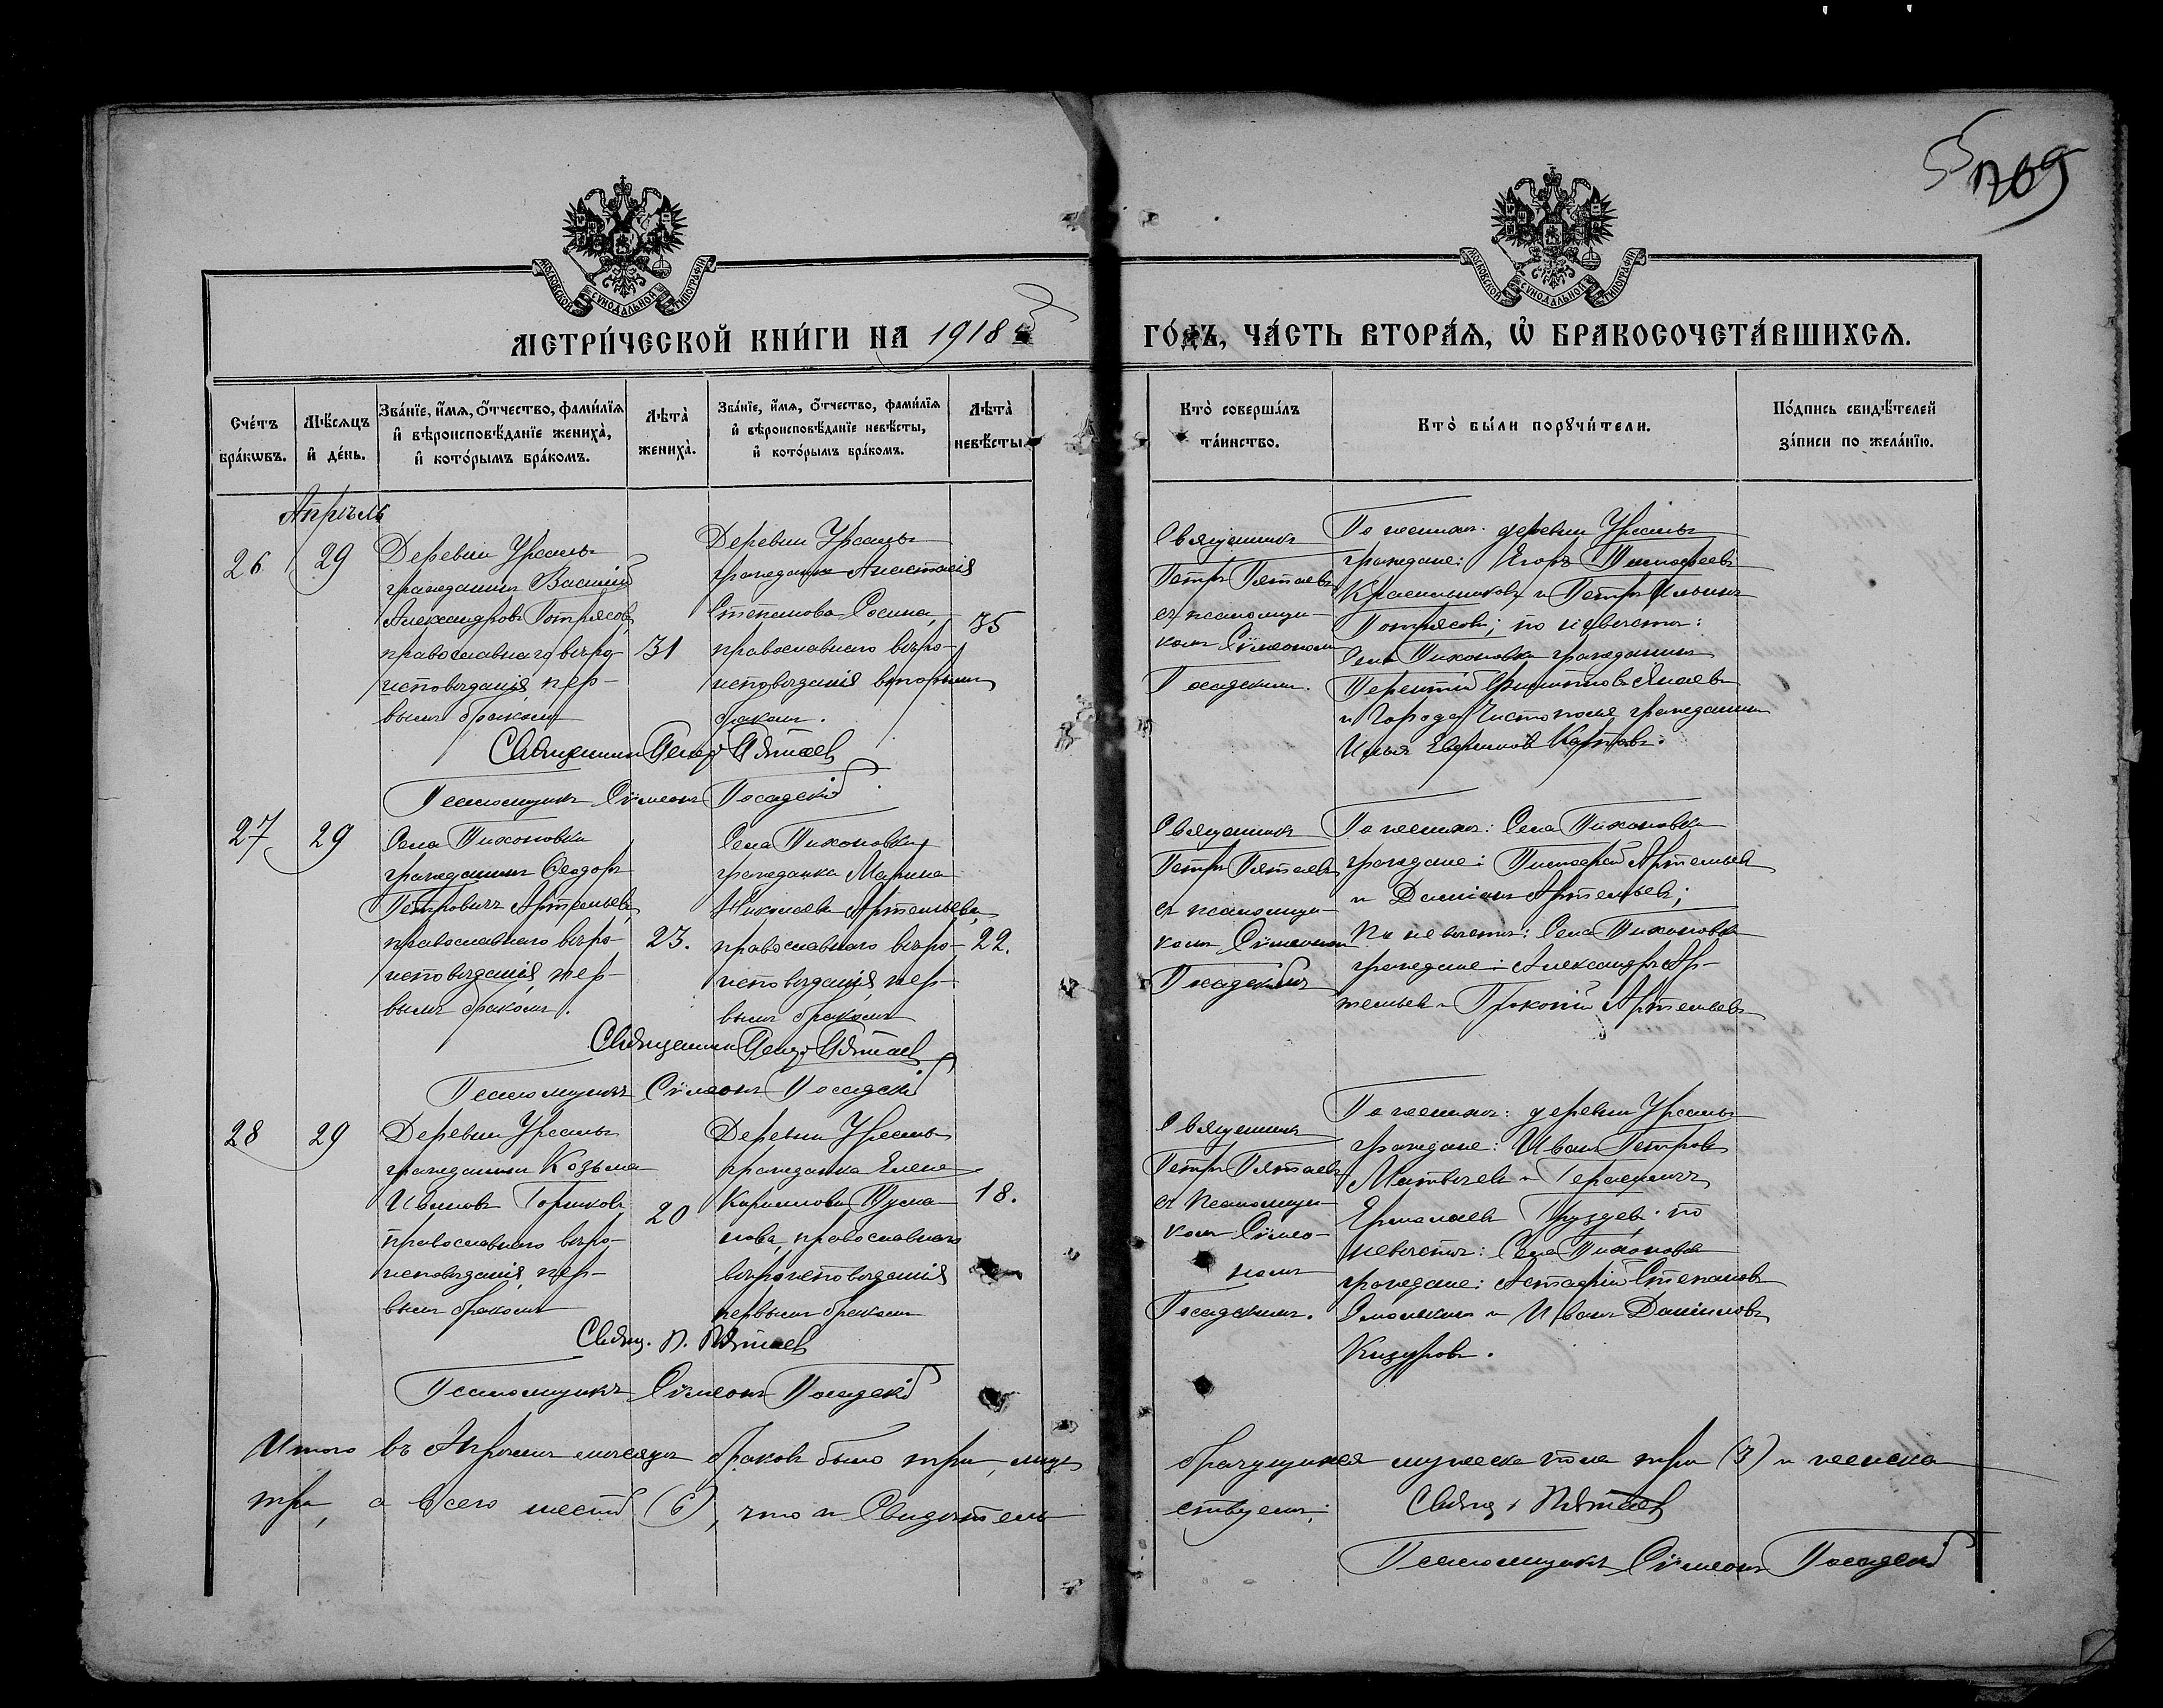 5
169
МОСКОВСКОЙ СѴНОДАЛЬНОЙ ТИПОГРАФІИ
МОСКОВСКОЙ СѴНОДАЛЬНОЙ ТИПОГРАФІИ
МЕТРИ́ЧЕСКОЙ КНИ́ГИ НА 1918
ГО́ДЪ, ЧА́СТЬ ВТОРА́Ѧ, Ѽ БРАКОСОЧЕТА́ВШИХСѦ.
Сче́тъ
бра́кѡвъ.
Мѣ́сѧцъ
и҆ де́нь.
Зва́нїе, и҆́мѧ, ѻ҆́тчество, фами́лїѧ
и҆ вѣроисповѣ́данїе жениха̀,
и҆ кото́рымъ бра́комъ.
Лѣ́та̀
жениха̀.
Зва́нїе, и҆́мѧ, ѻ҆́тчество, фами́лїѧ
и҆ вѣроисповѣ́данїе невѣ́сты,
и҆ кото́рымъ бра́комъ.
Лѣ́та̀
невѣ́сты.
Кто̀ соверша́лъ
та́инство.
Кто̀ бы́ли порꙋчи́тели.
По́дпись свидѣ́телей
за́писи по жела́нїю.
Апрѣль
26
29
Деревни Урсалы
гражданинъ Василій
Александровъ Потрясовъ,
православнаго вѣро-
исповѣданія, пер-
вымъ бракомъ
31
Деревни Урсалы
гражданка Анастасія
Степанова Сосина,
православнаго вѣро-
исповѣданія вторымъ
бракомъ.
35
Священникъ
Петръ Пятаевъ
съ псаломщи-
комъ Сѵмеономъ
Посадскимъ.
По женихѣ: деревни Урсалы
граждане: Егоръ Тимофеевъ
Красильниковъ и Петръ Ильинъ
Потрясовъ; по невѣстѣ:
Села Тихоновки гражданинъ
Терентій
и города Чистополя гражданинъ
Илья
Священникъ Петръ Пятаевъ
Псаломщикъ Сѵмеонъ Посадскій
27
29
Села Тихоновки
гражданинъ Ѳеодоръ
Петровичъ Артемьевъ,
православнаго вѣро-
исповѣданія, пер-
вымъ бракомъ.
23.
Села Тихоновки
гражданка Марина
Николаева Артемьева,
православнаго вѣро-
исповѣданія, пер-
вымъ бракомъ
22.
Священникъ
Петръ Пятаевъ
съ псаломщи-
комъ Сѵмеономъ
Посадскимъ
По женихѣ: Села Тихоновки
граждане: Тимофей Артемьевъ
и Даміанъ Артемьевъ;
По невѣстѣ: Села Тихоновки
граждане: Александръ Ар-
темьевъ и Прокопій Артемьевъ
Священникъ Петръ Пятаевъ
Псаломщикъ Сѵмеонъ Посадскій
28
29
Деревни Урсалы
гражданинъ Козьма
Ивановъ Горшковъ,
православнаго вѣро-
исповѣданія, пер-
вымъ бракомъ
20
Деревни Урсалы
гражданка Елена
Кириллова Тума-
нова, православнаго
вѣроисповѣданія
первымъ бракомъ
18.
Священникъ
Петръ Пятаевъ
съ псаломщи-
комъ Сѵмео-
номъ
Посадскимъ.
По женихѣ: деревни Урсалы
граждане: Иванъ Петровъ
Матвѣевъ и Герасимъ
Ермолаевъ Груздевъ; по
невѣстѣ: Села Тихоновки
граждане: Астафій Степановъ
Смолькинъ и Иванъ Даниловъ
Кизуровъ.
Свящ. П. Пятаевъ
Псаломщикъ Сѵмеонъ Посадскій
Итого въ Апрѣлѣ мѣсяцѣ браковъ было три, лицъ
брачущихся мужеска пола три (3) и женска
три, а всего шесть (6), что и свидѣтель-
ствуемъ:
Свящ. П. Пятаевъ
Псаломщикъ Сѵмеонъ Посадскій